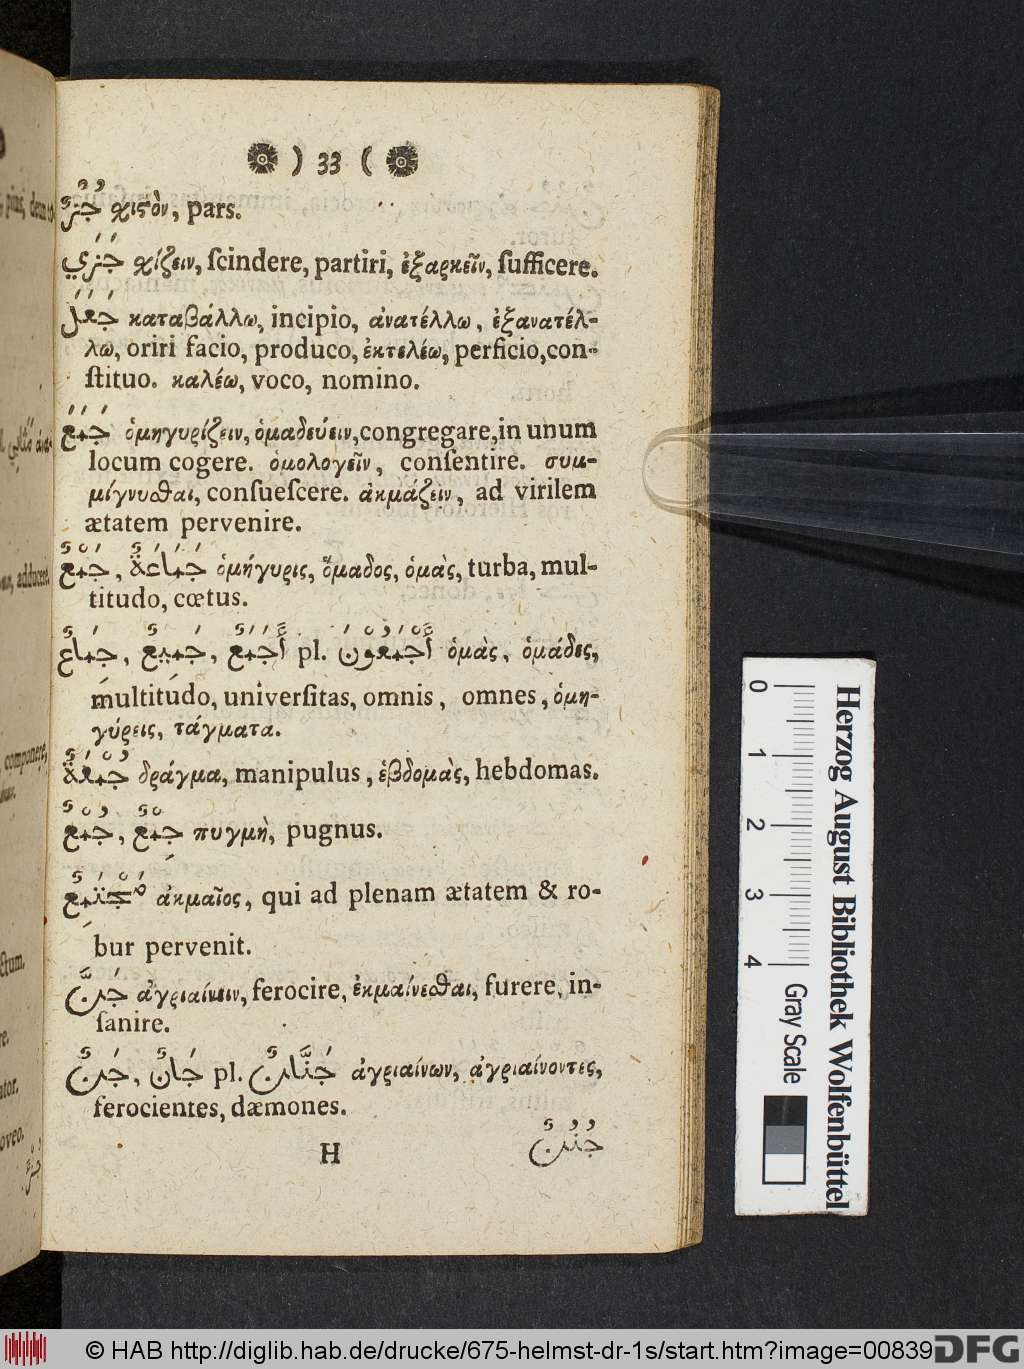 ) 33 (
جُزُؤٌ χιϛὸν, pars.
جَزَي χίζειν, ſcindere, partiri, ἐξαρκεῖν, ſufficere.
جَعَلَ καταβάλλω, incipio, ἀνατέλλω, ἐξανατέλ-
λω, oriri facio, produco, ἐκτελέω, perficio, con-
ſtituo. καλέω, voco, nomino.
جَمَعَ ὁμηγυρίζειν, ὁμαδεύειν, congregare, in unum
locum cogere. ὁμολογεῖν, conſentire. συμ-
μίγνυσθαι, conſueſcere. ἀκμάζειν, ad virilem
ætatem pervenire.
جَمْعٌ, جَمَاعَةٌ ὁμήγυρις, ὅμαδος, ὁμὰς, turba, mul-
titudo, cœtus.
جِمَاعٌ, جَمِيعٌ, أَجْمَعُ pl. أَجْمَعُونَ ὁμὰς, ὁμάδες,
multitudo, univerſitas, omnis, omnes, ὁμη-
γύρεις, τάγματα.
جُمْعَةٌ δράγμα, manipulus, ἑβδομὰς, hebdomas.
جُمْعٌ, جِمْعٌ πυγμὴ, pugnus.
مُجْتَمِعٌ ἀκμαῖος, qui ad plenam ætatem & ro-
bur pervenit.
جَنَّ ἀγριαίνειν, ferocire, ἐκμαίνεσθαι, furere, in-
ſanire.
جَنٌ, جَانٌ pl. جَنَّانٌ ἀγριαίνων, ἀγριαίνοντες,
ferocientes, dæmones.
H جُنُنٌ
pius,
adducere.
componere,
Herzog August Bibliothek Wolfenbüttel
0 1 2 3 4 Gray Scale
© HAB http://diglib.hab.de/drucke/675-helmst-dr-1s/start.htm?image=00839 DFG